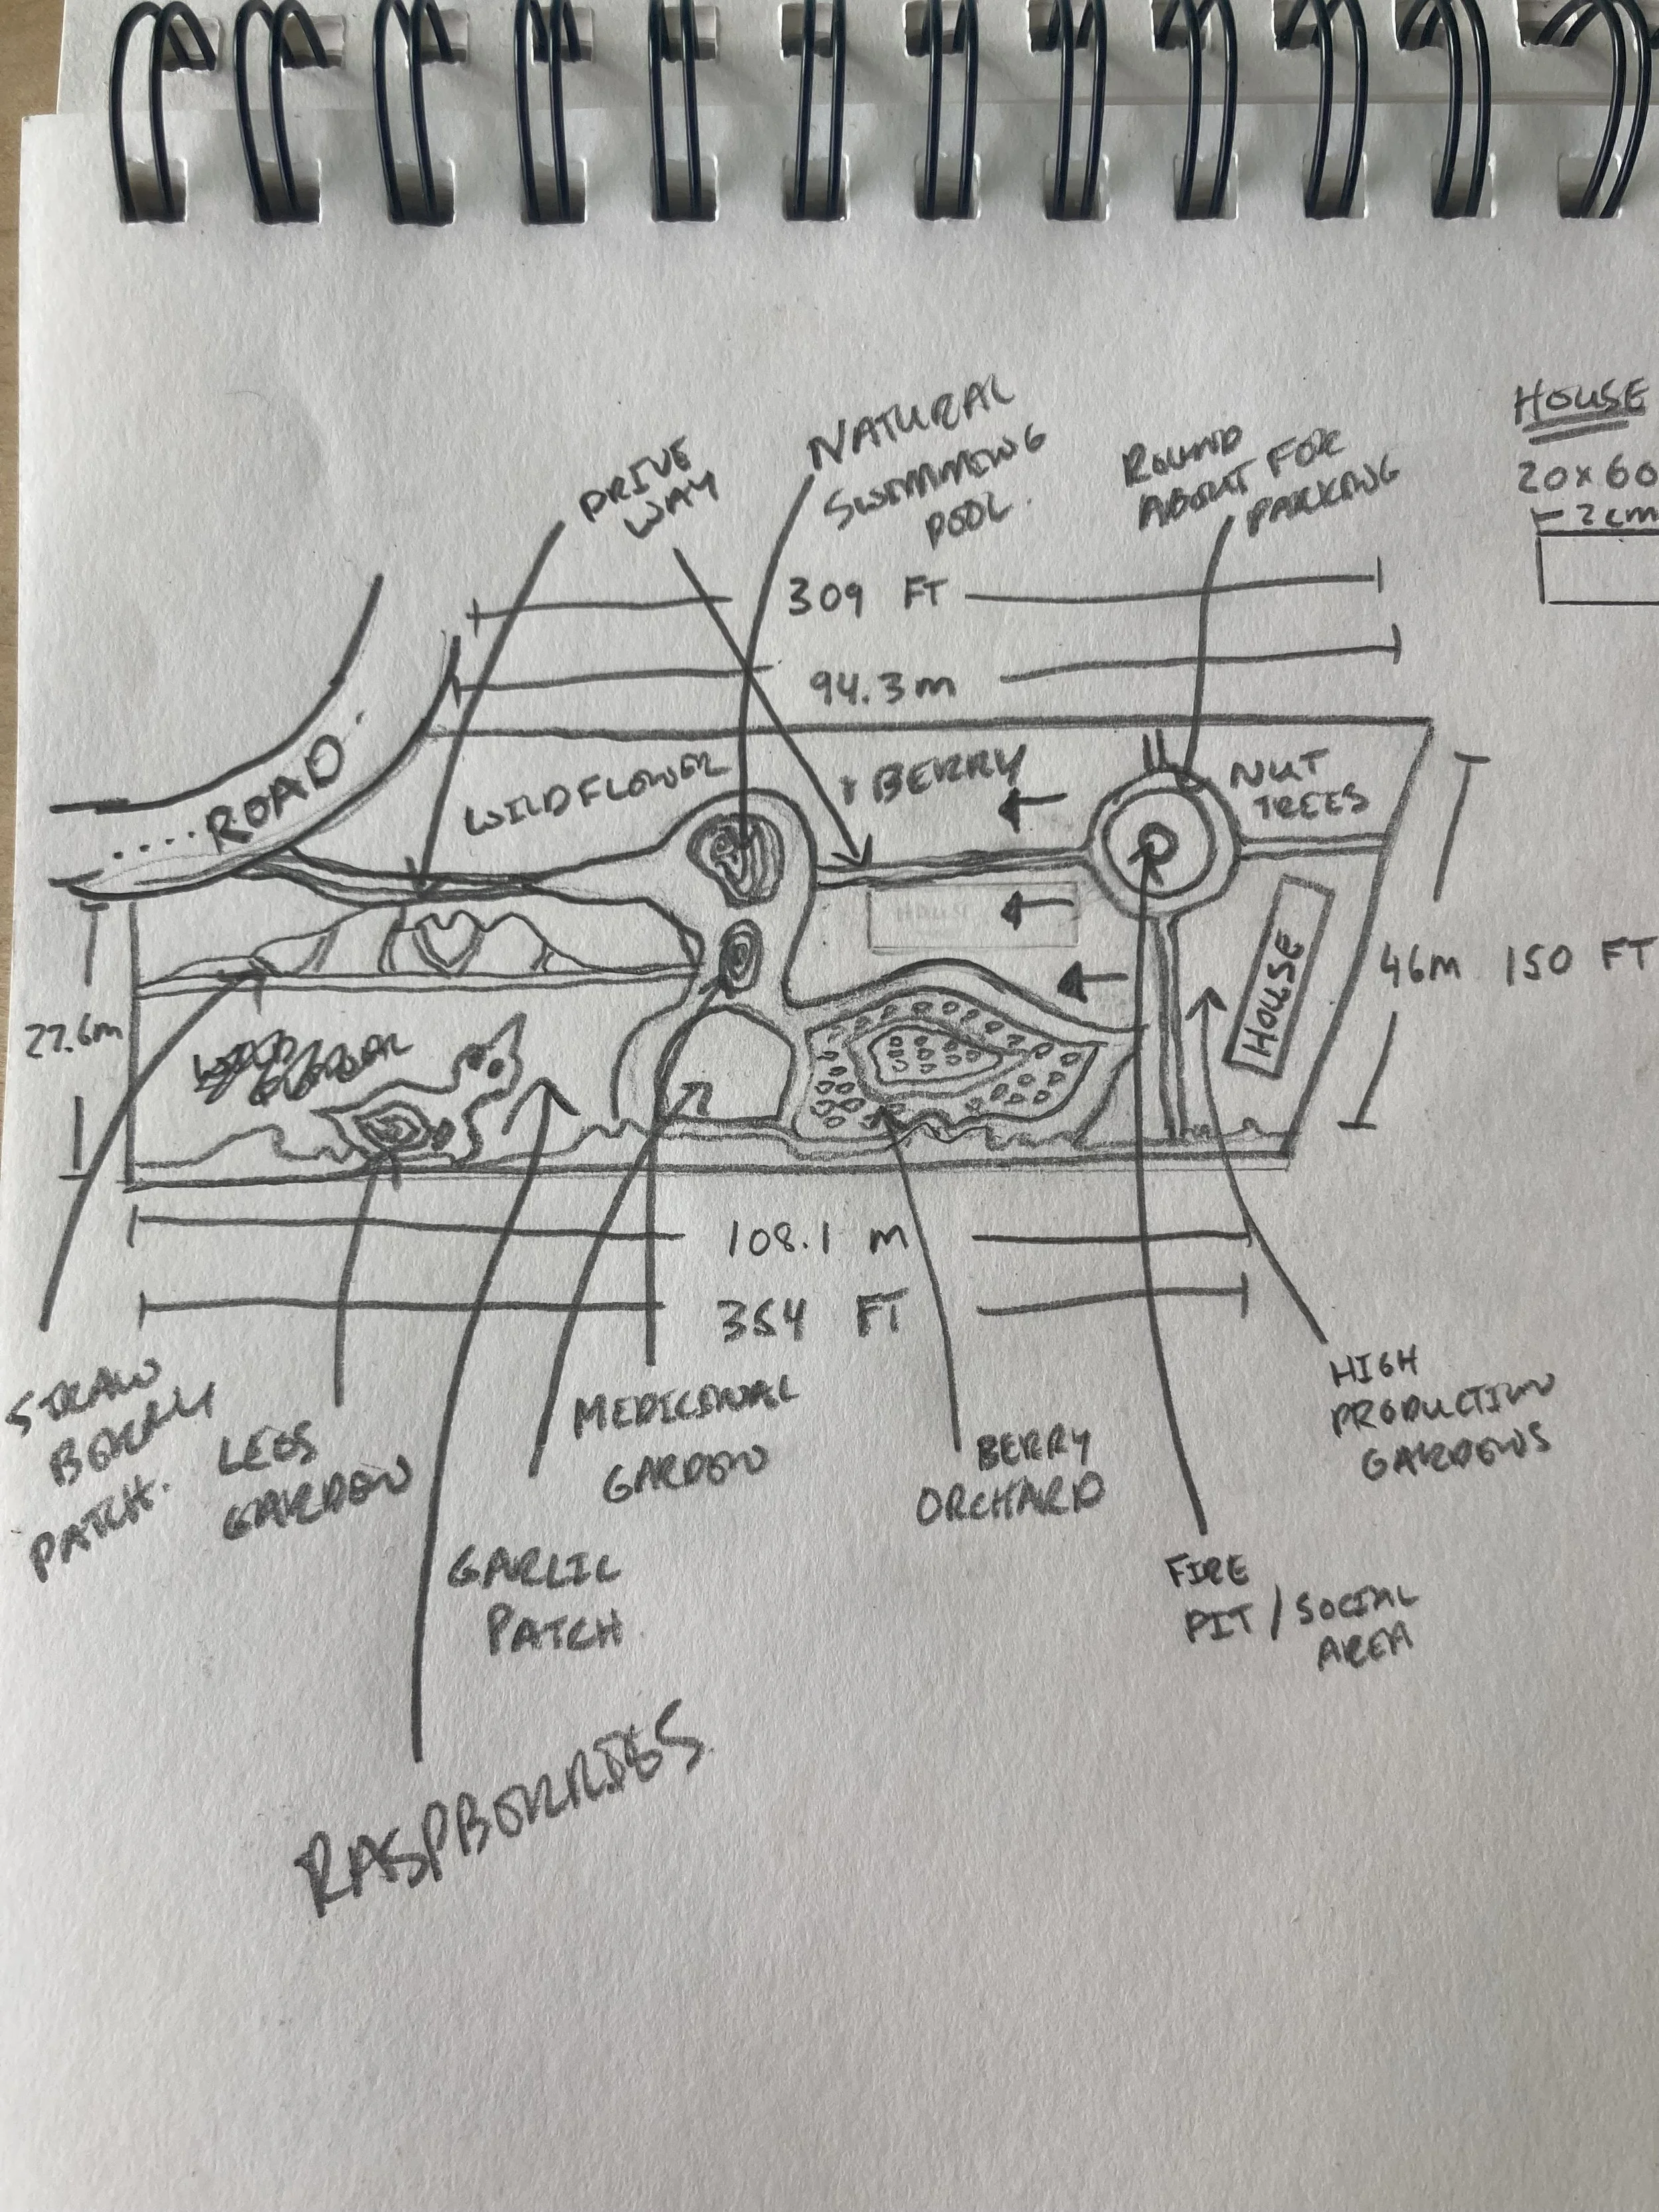 HOUSE
20 x 60
2 cm
NATURAL
SWIMMING
POOL.
DRIVE
WAY
ROUND
ABOUT FOR
PARKING
309 FT
94.3m
....ROAD
WILDFLOWER
BERRY
NUT
TREES
HOUSE
HOUSE
46m 150 FT
27.6m
108.1 m
354 FT
STRAW
BERRY
PATCH.
LEGS
GARDEN
MEDICINAL
GARDEN
BERRY
ORCHARD
HIGH
PRODUCTION
GARDENS
GARLIC
PATCH.
FIRE
PIT / SOCIAL
AREA
RASPBERRIES